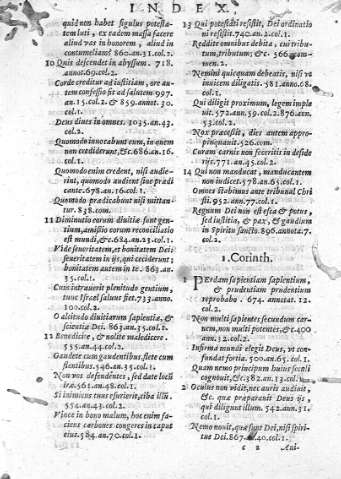 INDEX.
quidem habet figulus potesta-
tem luti, ex eadem massa facere
aliud vas in honorem, aliud in
contumeliam? 860.an.31.col.1.
10 Quis descendet in abyssum. 718.
annot.69.col.2.
Corde creditur ad iustitiam, ore au-
tem confessio fit ad salutem 997.
an.15.col.2. & 859.annot.30.
col.1.
Deus dives in omnes. 3035.an.43.
col.2.
Quomodo invocabunt eum, in quem
non crediderunt, &c. 686.an.16.
col.1.
Quomodo credent, nisi audie-
rint, quomodo audient sine prædi
cante. 678.an.16.col.1.
Quomodo prædicabunt nisi mittan-
tur. 838.com.
11 Diminutio eorum divitiæ sunt gen-
tium, amissio eorum reconciliatio
est mundi, &c. 684.an.13.col.1.
Vide severitatem, et bonitatem Dei:
severitatem in ijs, qui ceciderunt;
bonitatem autem in te. 863.an.
35.col.1.
Cum intraverit plenitudo gentium,
tunc Israël salvus fiet. 733.anno.
100.col.1.
O altitudo divitiarum sapientiæ, &
scientiæ Dei. 863.an.35.col.1.
12 Benedicite, & nolite maledicere.
555.an.44.col.2.
Gaudete cum gaudentibus, flete cum
flentibus. 546.an.35.col.1.
Non vos defendentes, sed date locũ
iræ. 561.an.48.col.1.
Si inimicus tuus esurierit, ciba illũ.
554.an.43.col.2.
Vince in bono malum, hoc enim fa-
ciens carbones congeres in caput
eius. 384.an.70.col.1.
13 Qui potestati resistit, Dei ordinatio
ni resistit. 740.an.2.col.1.
Reddite omnibus debita, cui tribu-
tum, tributum; &c. 566.com-
men.2.
Nemini quicquam debeatis, nisi ut
invicem diligatis. 581.anno.68.
col.1.
Qui diligit proximum, legem imple
vit. 572.ann.59.col.2.876.ann.
52.col.2.
Nox præcessit, dies autem appro-
pinquavit. 526.com.
Curam carnis non feceritis in deside
rijs. 771.an.45.col.2.
14 Qui non manducat, manducantem
non iudicet. 578.an.65.col.1.
Omnes stabimus ante tribunal Chri
sti. 952.ann.77.col.1.
Regnum Dei non est esca & potus,
sed iustitia, & pax, & gaudium
in Spiritu sancto. 896.annotat.7.
col.2.
1. Corinth.
PErdam sapientiam sapientium,
& prudentiam prudentium
reprobabo. 674. annotat.12.
col.2.
Non multi sapientes secundum car-
nem, non multi potentes, &c. 400
ann.32.col.2.
Infirma mundi elegit Deus, ut con-
fundat fortia. 500.an.65.col.1.
Quam nemo principum huius seculi
cognovit, &c. 382.an.33.col.1.
2 Oculus non vidit, nec auris audivit,
&c. quæ præparavit Deus ijs
qui diligunt illum. 542.ann.31.
col.1.
Nemo novit, quæ sunt Dei, nisi spiri-
tus Dei. 867. 40.col.1.
c 2 Ani-